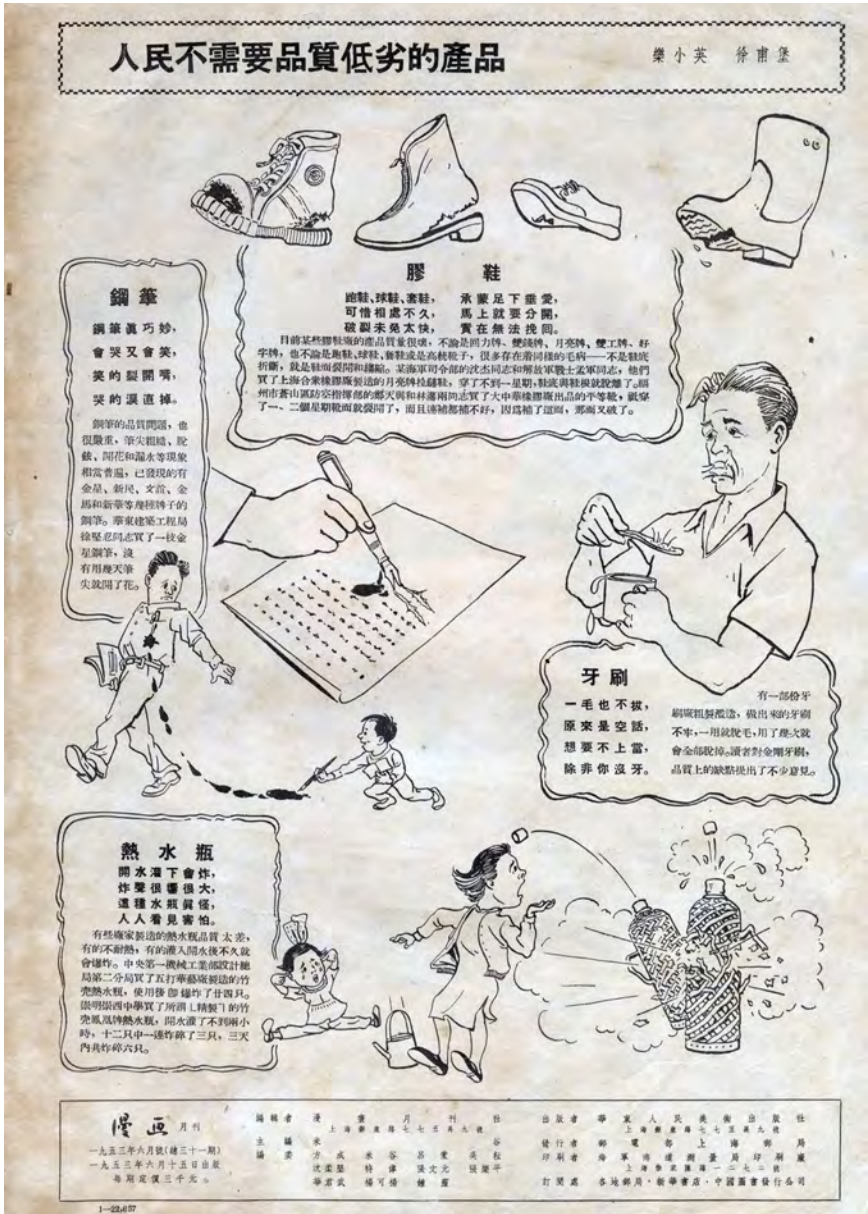 人民不需要品質低劣的產品
樂小英 徐甫堡
膠鞋
跑鞋、球鞋、套鞋， 承蒙足下垂愛，
可惜相處不久， 馬上就要分開，
破裂未免太快， 實在無法挽回。
目前某些膠鞋廠的產品質量很壞，不論是回力牌、雙錢牌、月亮牌、雙工牌、好
字牌，也不論是跑鞋、球鞋、套鞋或是高統靴子，很多存在着同樣的毛病——不是鞋底
折斷，就是鞋面裂開和縐縮。某海軍司令部的沈杰同志和解放軍戰士孟軍同志，他們
買了上海合衆橡膠廠製造的月亮牌拉鏈鞋，穿了不到一星期，鞋底與鞋根就脫離了。福
州市蒼山區防空指揮部的鄭天與和林藩兩同志買了大中華橡膠廠出品的平等靴，祇穿
了一、二個星期靴面就裂開了，而且連補都補不好，因爲補了這面，那面又破了。
鋼筆
鋼筆眞巧妙，
會哭又會笑，
笑的裂開嘴，
哭的淚直掉。
鋼筆的品質問題，也
很嚴重，筆尖粗糙、脫
銥、開花和漏水等現象
相當普遍，已發現的有
金星、新民、文誼、金
馬和新華等幾種牌子的
鋼筆。華東建築工程局
徐堅忍同志買了一枝金
星鋼筆，沒
有用幾天筆
尖就開了花。
牙刷
一毛也不拔，
原來是空話，
想要不上當，
除非你沒牙。
有一部份牙
刷廠粗製濫造，做出來的牙刷
不牢，一用就脫毛，用了幾次就
會全部脫掉。讀者對金剛牙刷，
品質上的缺點提出了不少意見。
熱水瓶
開水灌下會炸，
炸聲很響很大，
這種水瓶眞怪，
人人看見害怕。
有些廠家製造的熱水瓶品質太差，
有的不耐熱，有的灌入開水後不久就
會爆炸。中央第一機械工業部設計總
局第二分局買了五打華藝廠製造的竹
壳熱水瓶，使用後卽爆炸了廿四只。
崇明崇西中學買了所謂「精製」的竹
壳鳳凰牌熱水瓶，開水灌了不到兩小
時，十二只中一連炸碎了三只，三天
內共炸碎六只。
漫画 月刊
一九五三年六月號（總三十一期）
一九五三年六月十五日出版
每期定價三千元。
編輯者 漫畫月刊社
上海新康路七七五弄九號
主編 米谷
編委 方成 米谷 呂蒙 吳耘
沈柔堅 特偉 張文元 張樂平
華君武 楊可揚 鍾靈
出版者 華東人民美術出版社
上海新康路七七五弄九號
發行者 郵電部上海郵局
印刷者 海軍海道測量局印刷廠
訂閱處 各地郵局·新華書店·中國圖書發行公司
1—22,637